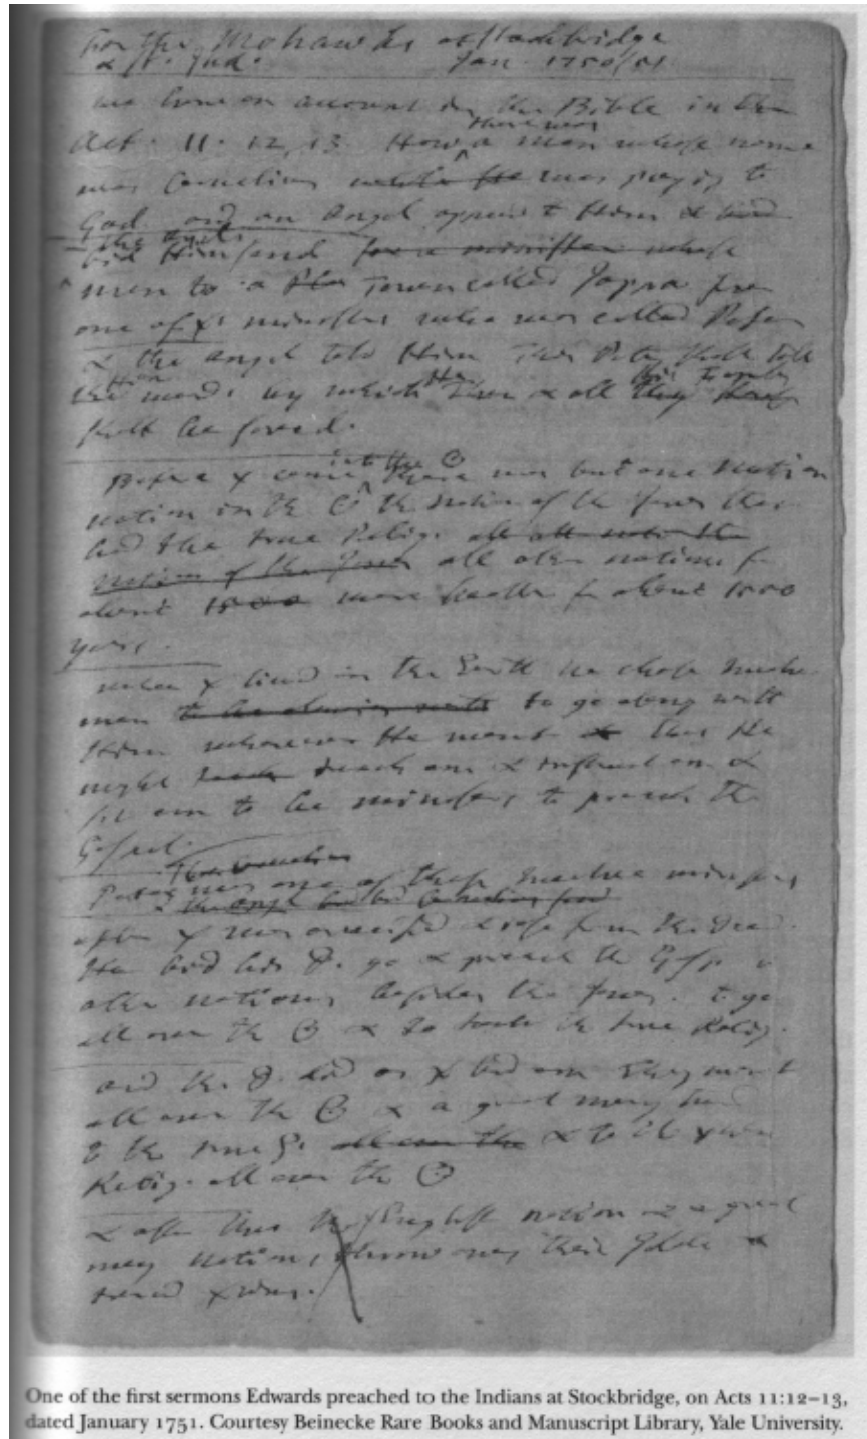 For the Mohawks at Stockbridge
& St. Ind. Jan. 1750/51
we have an account in the Bible in the
Act. 11. 12, 13. How there was a man whose name
was Cornelius while He was praying to
God and an Angel appeard to Him & bid
the angel
bid Him send for a minister whose
men to a Town called Joppa for
one of X's ministers who was called Peter
& the angel told Him that Peter should tell
Him words by which He & all his Family
should be saved.
Before X came into the there was but one Nation
nation in the the nation of the Jews that
had the true Relig.
nation of the Jews all other nations
about 1500 were heathen for about 1500
years.
when X lived in the Earth He chose twelve
men to go along with
Him wherever He went that He
might teach em & instruct em &
fit em to be ministers to preach the
Gospel.
Then Cornelius
Peter was one of these twelve ministers
the angel bid Cornelius send
after X was crucified & rose from the dead
He bid his D. go & preach the Gosp.
other nations besides the Jews. to go
all over the & to teach the true Relig.
and the D. did as X bid em They went
all over the & a great many
to the true G. all over the & to the
Relig. all over the
& after this the English nation & a great
many nations threw away their Idols &
turned
One of the first sermons Edwards preached to the Indians at Stockbridge, on Acts 11:12–13,
dated January 1751. Courtesy Beinecke Rare Books and Manuscript Library, Yale University.